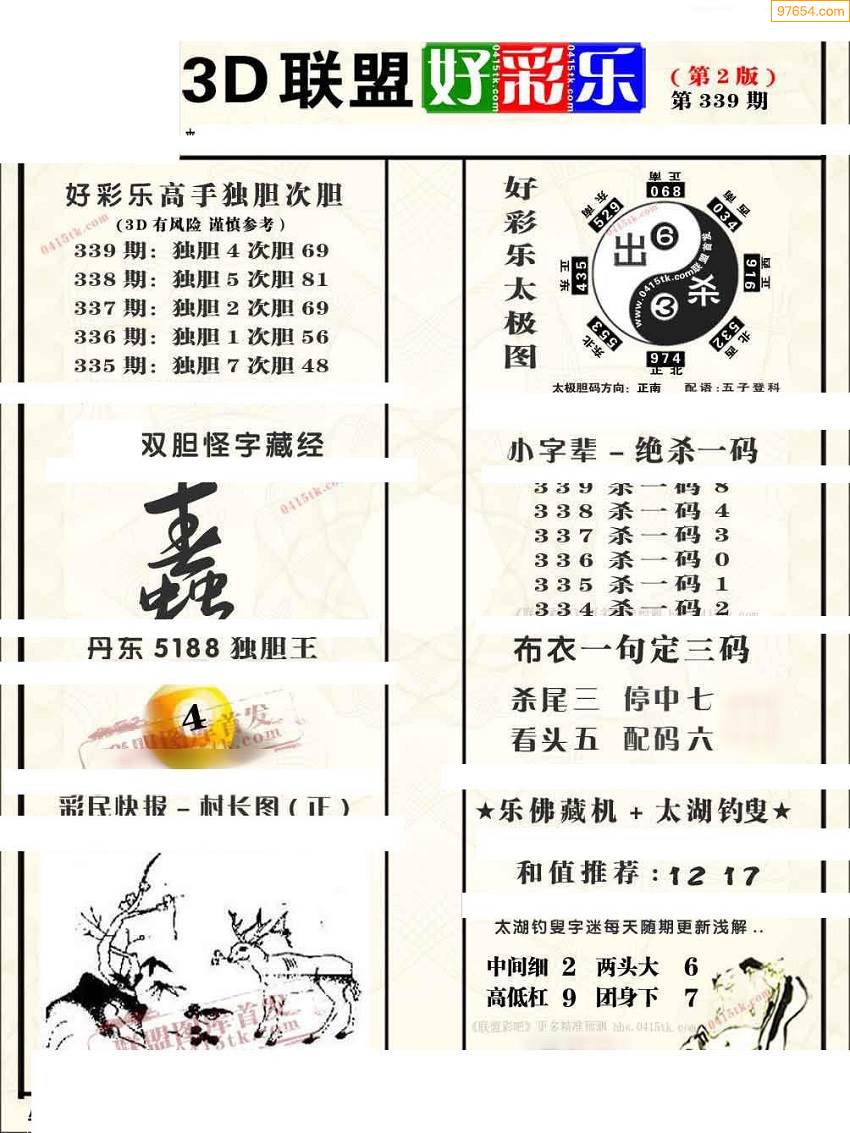 97654.com
3D联盟 好彩乐
(第2版)
第339期
好彩乐高手独胆次胆
(3D有风险 谨慎参考)
339期: 独胆4次胆69
338期: 独胆5次胆81
337期: 独胆2次胆69
336期: 独胆1次胆56
335期: 独胆7次胆48
0415tk.com
好彩乐太极图
正南 068
西南 034
正西 916
西北 532
正北 974
东北 553
正东 435
东南 529
出 6
杀 3
www.0415tk.com联盟首发
太极胆码方向: 正南 配语: 五子登科
双胆怪字藏经
0415tk.com
小字辈 - 绝杀一码
339 杀一码 8
338 杀一码 4
337 杀一码 3
336 杀一码 0
335 杀一码 1
334 杀一码 2
丹东 5188 独胆王
4
联盟图库首发
布衣一句定三码
杀尾三 停中七
看头五 配码六
彩民快报 - 村长图 (正)
联盟图库首发
0415tk.com
★乐佛藏机 + 太湖钓叟★
和值推荐: 12 17
太湖钓叟字迷每天随期更新浅解..
中间细 2 两头大 6
高低杠 9 团身下 7
《联盟彩吧》更多精准预测 bbs.0415tk.com
0415tk.com